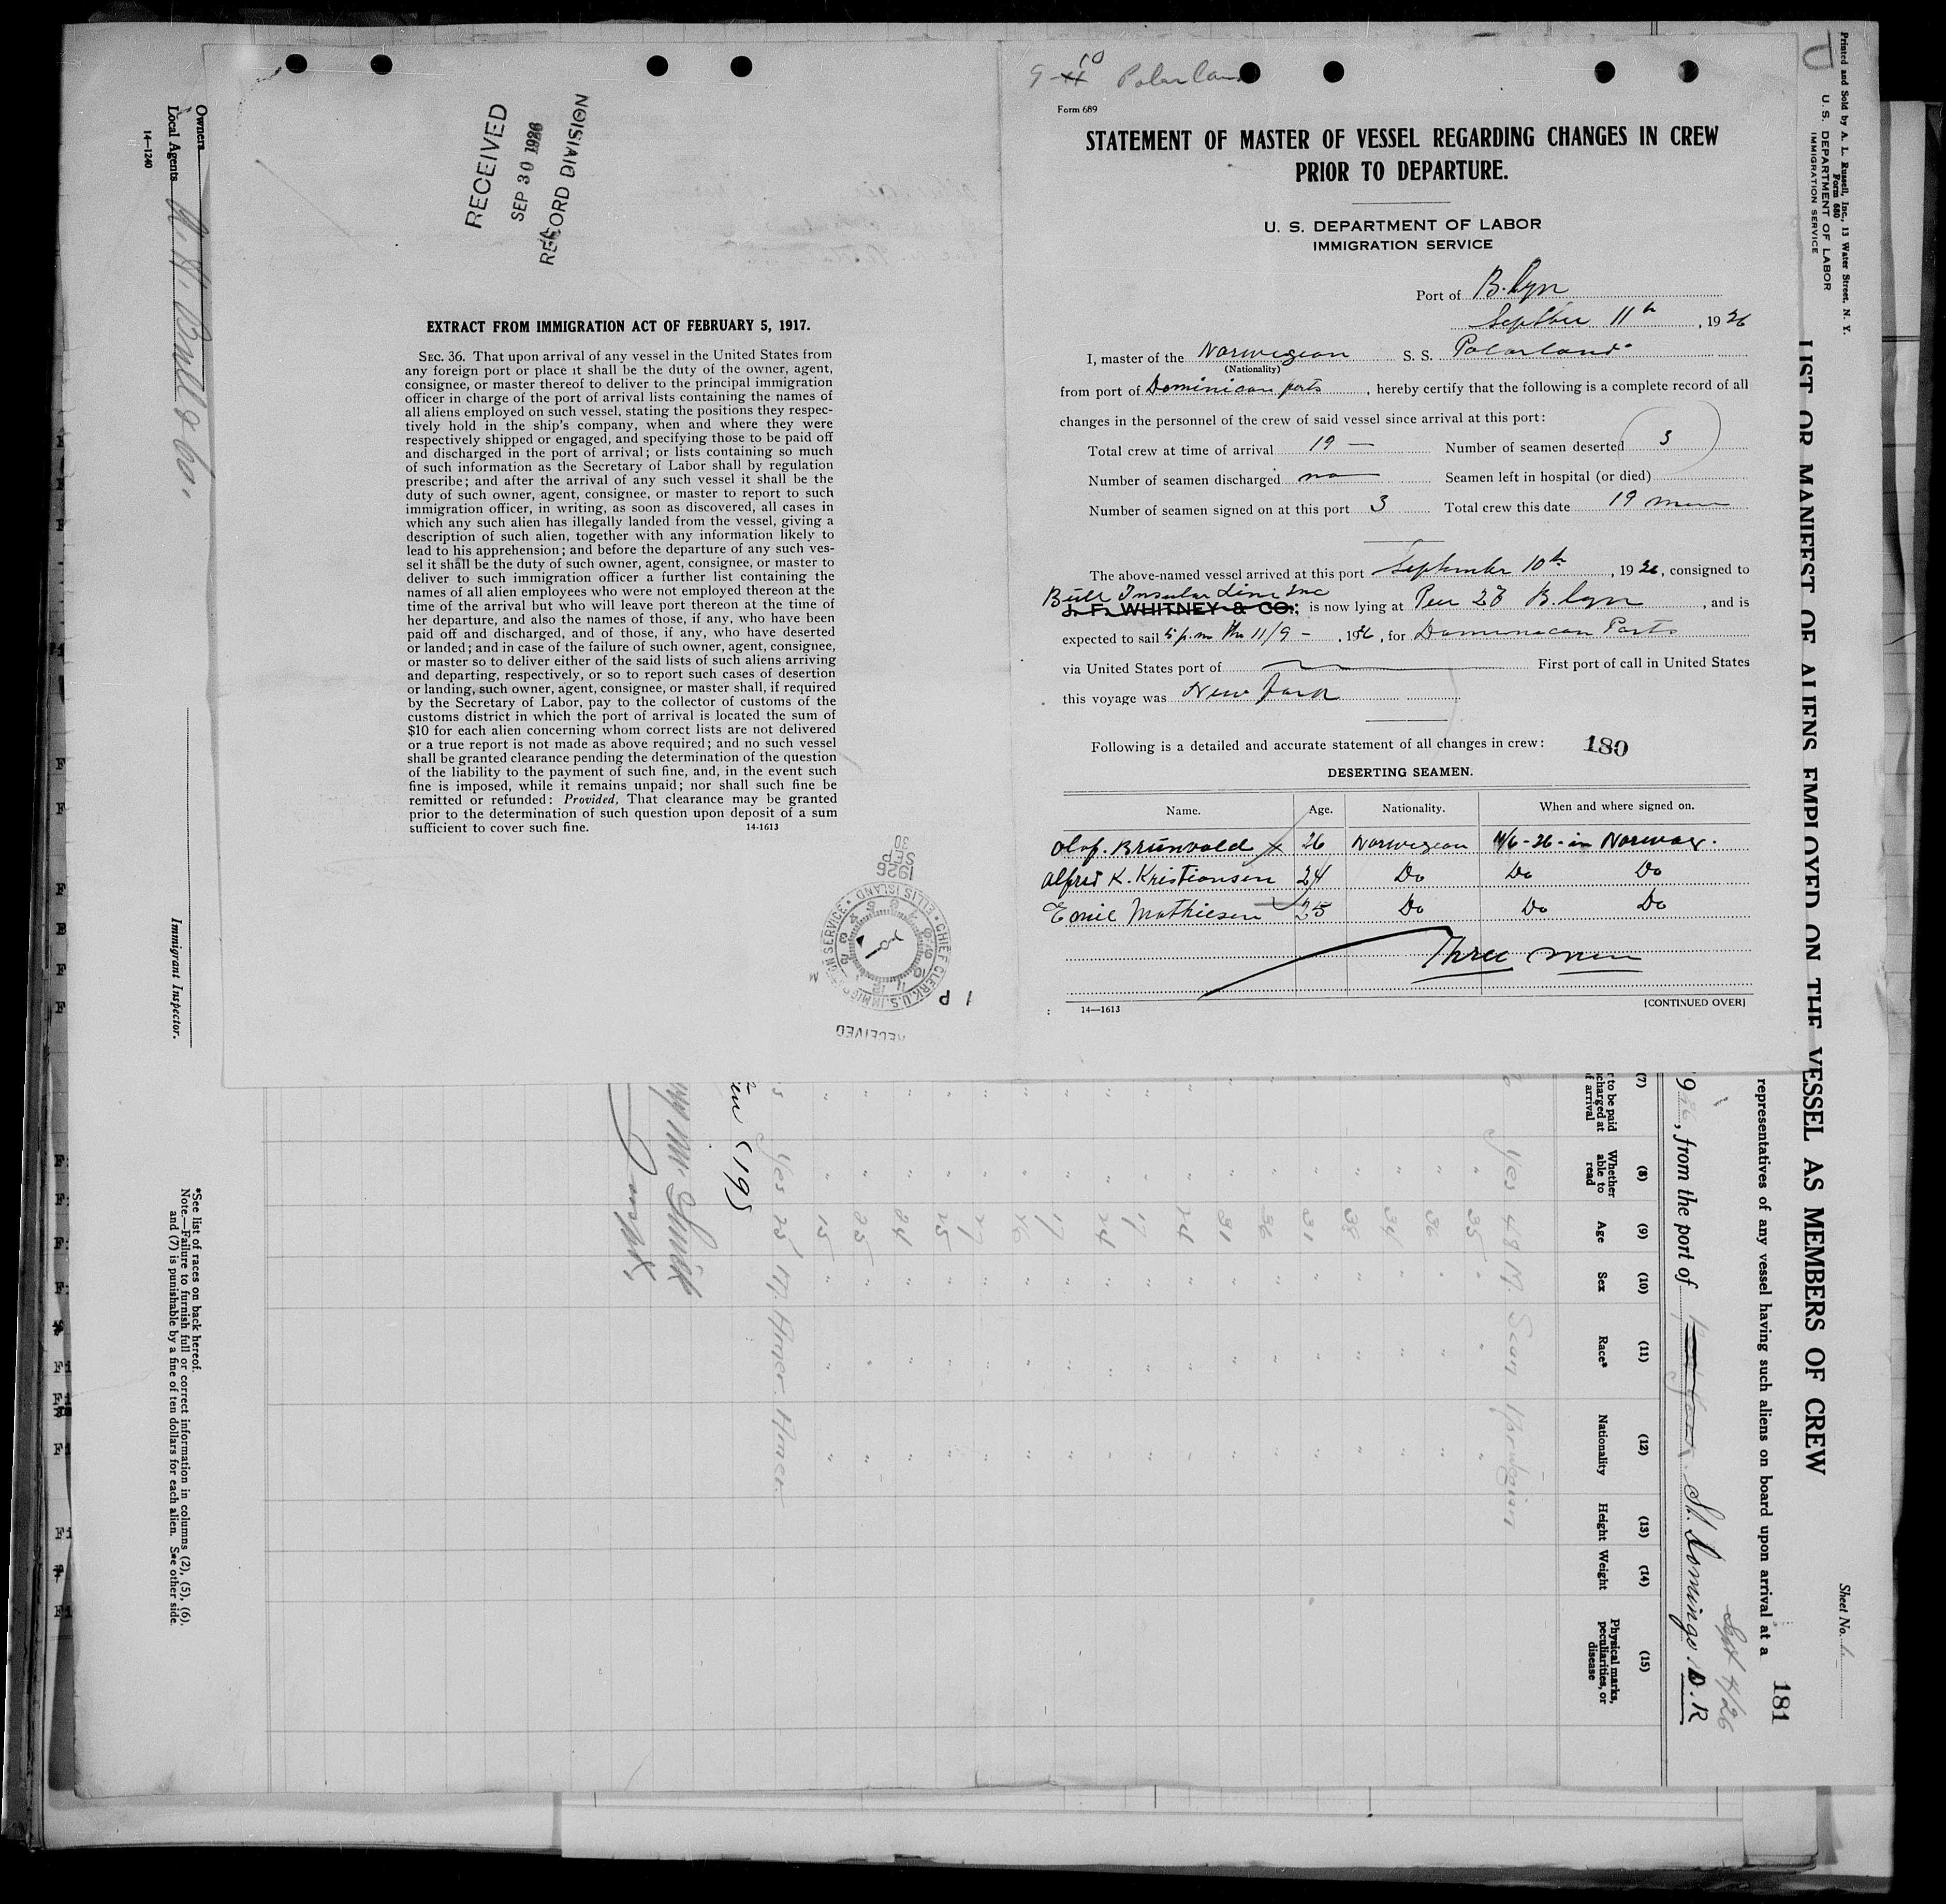 RECEIVED
SEP 30 1926
RECORD DIVISION
EXTRACT FROM IMMIGRATION ACT OF FEBRUARY 5, 1917.
SEC. 36. That upon arrival of any vessel in the United States from
any foreign port or place it shall be the duty of the owner, agent,
consignee, or master thereof to deliver to the principal immigration
officer in charge of the port of arrival lists containing the names of
all aliens employed on such vessel, stating the positions they respec-
tively hold in the ship's company, when and where they were
respectively shipped or engaged, and specifying those to be paid off
and discharged in the port of arrival; or lists containing so much
of such information as the Secretary of Labor shall by regulation
prescribe; and after the arrival of any such vessel it shall be the
duty of such owner, agent, consignee, or master to report to such
immigration officer, in writing, as soon as discovered, all cases in
which any such alien has illegally landed from the vessel, giving a
description of such alien, together with any information likely to
lead to his apprehension; and before the departure of any such ves-
sel it shall be the duty of such owner, agent, consignee, or master to
deliver to such immigration officer a further list containing the
names of all alien employees who were not employed thereon at the
time of the arrival but who will leave port thereon at the time of
her departure, and also the names of those, if any, who have been
paid off and discharged, and of those, if any, who have deserted
or landed; and in case of the failure of such owner, agent, consignee,
or master so to deliver either of the said lists of such aliens arriving
and departing, respectively, or so to report such cases of desertion
or landing, such owner, agent, consignee, or master shall, if required
by the Secretary of Labor, pay to the collector of customs of the
customs district in which the port of arrival is located the sum of
$10 for each alien concerning whom correct lists are not delivered
or a true report is not made as above required; and no such vessel
shall be granted clearance pending the determination of the question
of the liability to the payment of such fine, and, in the event such
fine is imposed, while it remains unpaid; nor shall such fine be
remitted or refunded: Provided, That clearance may be granted
prior to the determination of such question upon deposit of a sum
sufficient to cover such fine. 14-1613
1926 SEP 30
CHIEF CLERK, U.S. IMMIGRATION SERVICE • ELLIS ISLAND •
1 P M
RECEIVED
9-10 Polarland
Form 689
STATEMENT OF MASTER OF VESSEL REGARDING CHANGES IN CREW
PRIOR TO DEPARTURE.
U. S. DEPARTMENT OF LABOR
IMMIGRATION SERVICE
Port of B.lyn
Septber 11th, 1926
I, master of the Norwegian S. S. Polarland
(Nationality)
from port of Dominican ports, hereby certify that the following is a complete record of all
changes in the personnel of the crew of said vessel since arrival at this port:
Total crew at time of arrival 19 — Number of seamen deserted 3
Number of seamen discharged no Seamen left in hospital (or died)
Number of seamen signed on at this port 3 Total crew this date 19 men
The above-named vessel arrived at this port September 10th, 1926, consigned to
Bull Insular Line Inc
J. F. WHITNEY & CO.; is now lying at Pier 28 B.lyn, and is
expected to sail 5 p.m the 11/9 - , 1926, for Dominacan Ports
via United States port of First port of call in United States
this voyage was New York
Following is a detailed and accurate statement of all changes in crew: 180
DESERTING SEAMEN.
Name. Age. Nationality. When and where signed on.
Olaf. Brunvald x 26 Norwegian 4/6-26-in Norway.
Alfred K. Kristiansen 24 Do Do Do
Emil Mathiesen 35 Do Do Do
Three men
14—1613 [CONTINUED OVER]
Printed and Sold by A. L. Russell, Inc., 13 Water Street, N. Y.
Form 680
U. S. DEPARTMENT OF LABOR
IMMIGRATION SERVICE
Sheet No. 1
LIST OR MANIFEST OF ALIENS EMPLOYED ON THE VESSEL AS MEMBERS OF CREW
181
representatives of any vessel having such aliens on board upon arrival at a
Sept 4/26
1926, from the port of St. Domingo. D.R
(7) (8) (9) (10) (11) (12) (13) (14) (15)
to be paid
charged at
of arrival
Whether
able to
read
Age
Sex
Race*
Nationality
Height
Weight
Physical marks,
peculiarities, or
disease
Yes 48 M. Scan Norwegian
" 35 " " "
" 36 " " "
" 34 " " "
" 33 " " "
" 31 " " "
" 36 " " "
" 31 " " "
" 24 " " "
" 17 " " "
" 24 " " "
" 17 " " "
" 26 " " "
" 27 " " "
" 25 " " "
" 24 " " "
" 25 " " "
" 15 " " "
Yes 25 M. Amer. Amer.
(19)
Owners
Local Agents A. H. Bull & Co.
14—1240
Immigrant Inspector.
*See list of races on back hereof.
Note.—Failure to furnish full or correct information in columns (2), (5), (6),
and (7) is punishable by a fine of ten dollars for each alien. See other side.